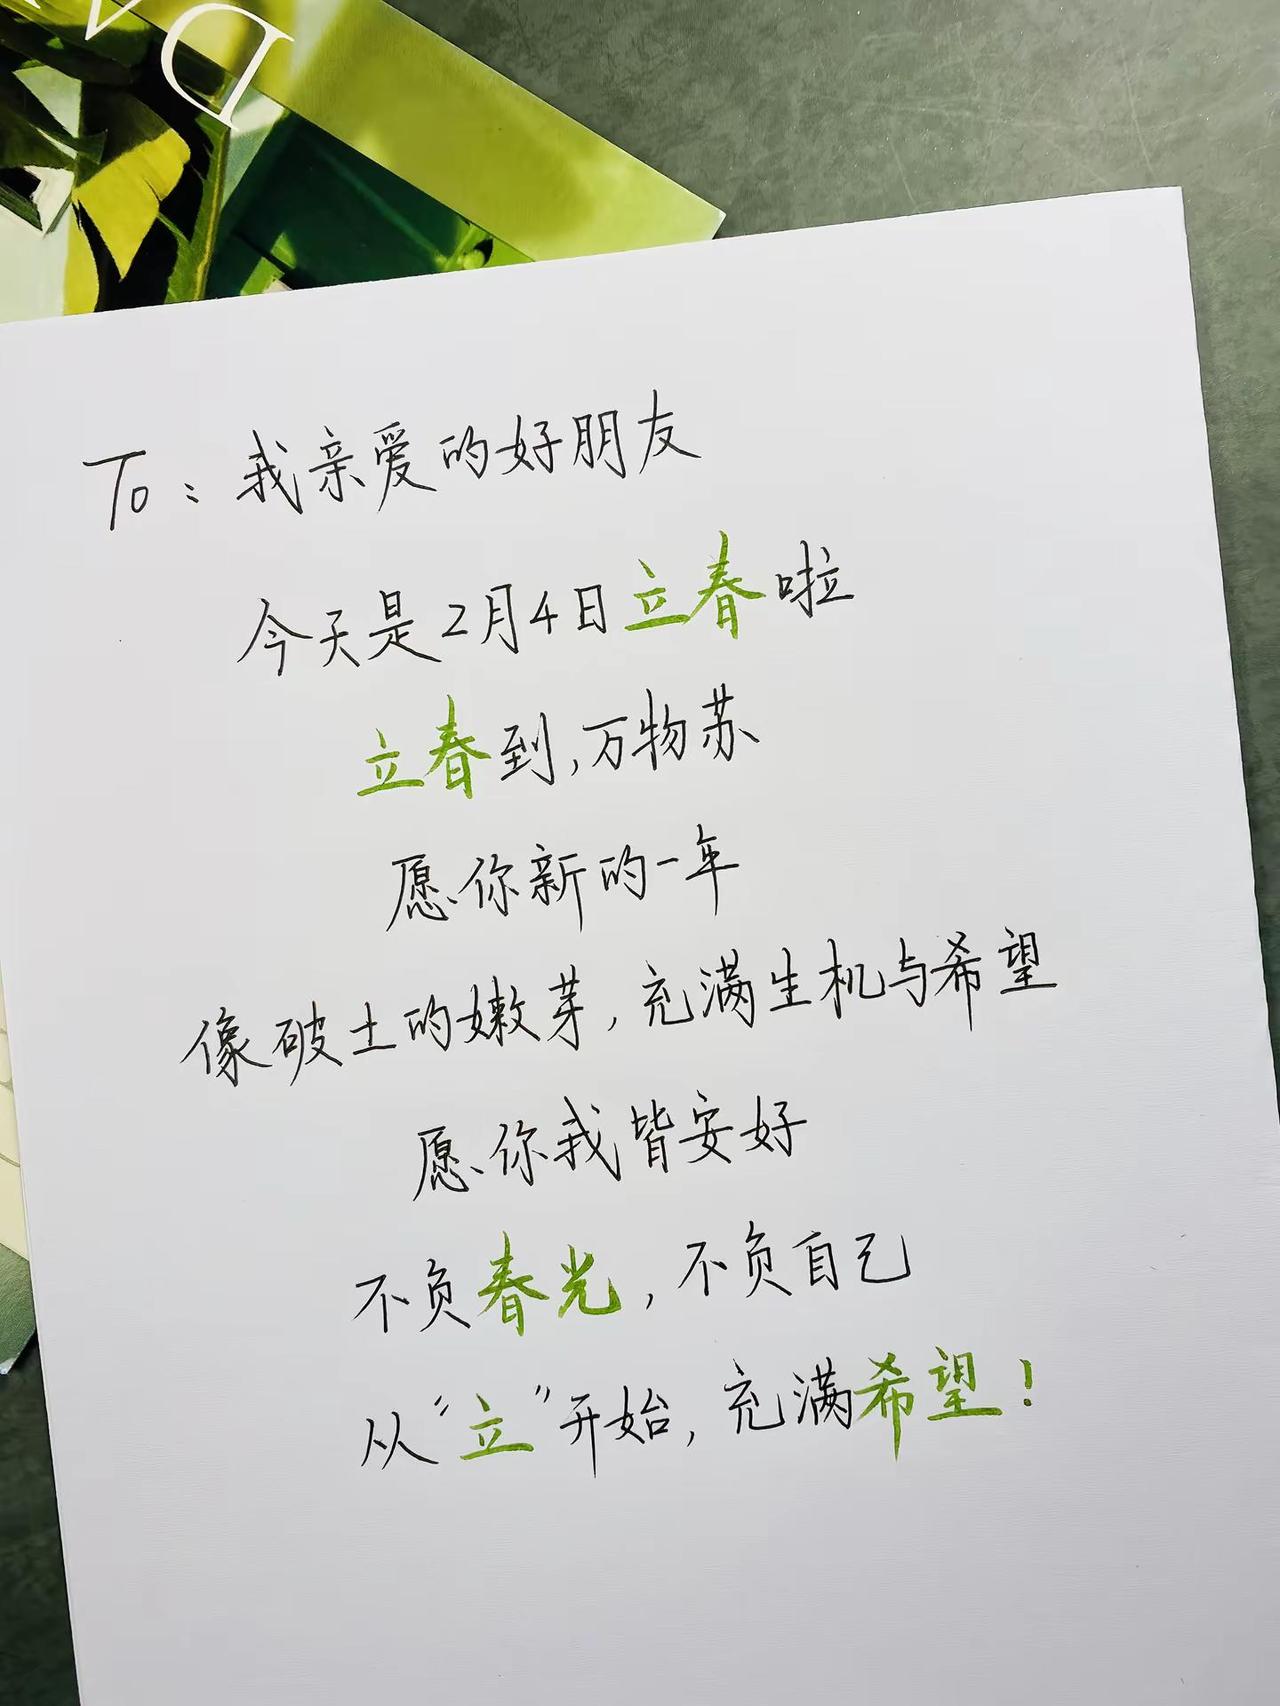 To：我亲爱的好朋友
今天是2月4日立春啦
立春到,万物苏
愿你新的一年
像破土的嫩芽,充满生机与希望
愿你我皆安好
不负春光,不负自己
从“立”开始,充满希望!